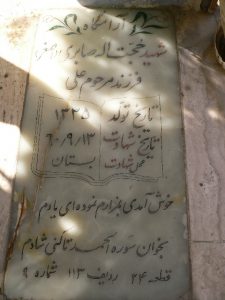 آرامگاه
شهید حجت اله صابری
فرزند مرحوم علی
تاریخ تولد ۱۳۲۵
تاریخ شهادت ۶۰/۹/۱۳
محل شهادت بستان
خوش آمدی بمزارم نموده ای یادم
بخوان سوره الحمد تا کنی شادم
قطعه ۲۴ ردیف ۱۱۳ شماره ۹